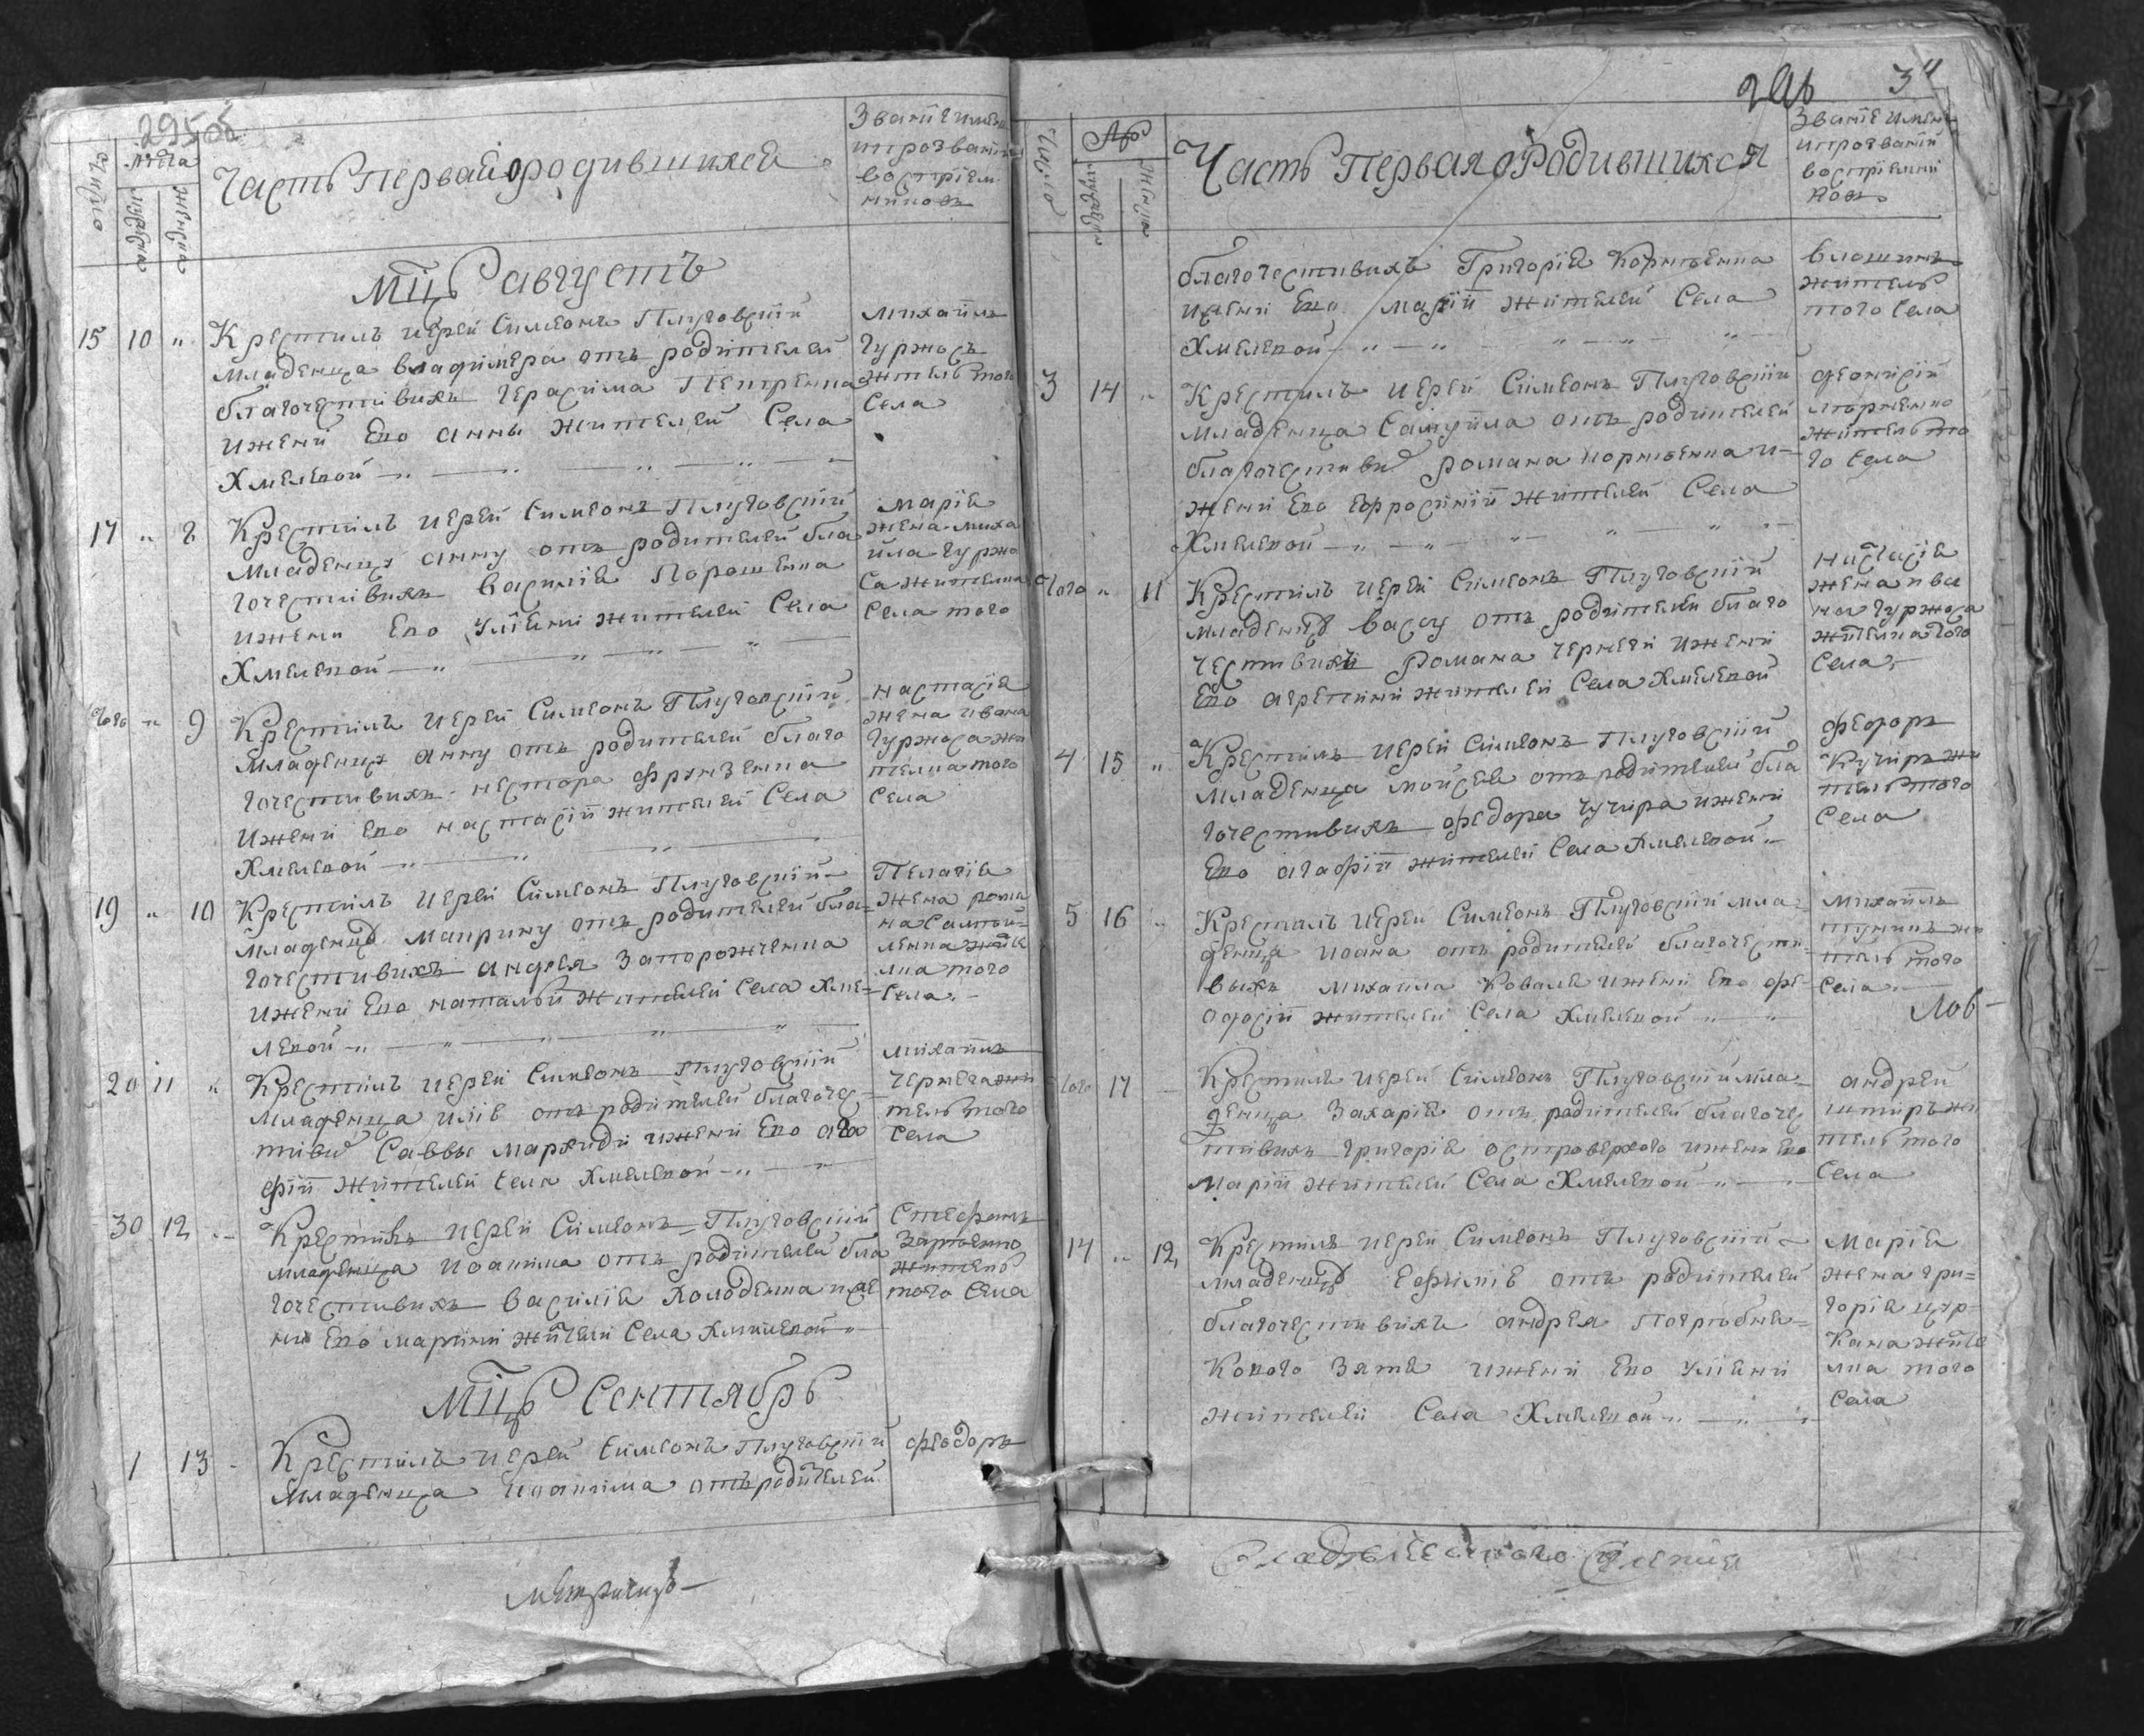 295об
Число
№ГА
мужеска
женска
Часть первая о родившихся
Званїе имена
и прозванїи
воспрїем
никовъ
Мцъ августъ
15 10 „ Крестилъ иерей Симеонъ Плуговскїй
младенца владимера отъ родителей
благочестивихъ герасима Петренка
и жени Его анны жителей Села
Хмелевой
Михайлъ
Гуржосъ
житель того
Села
17 „ 8 Крестилъ иерей Симеонъ Плуговскїй
младенца анну отъ родителей бла
гочестивихъ василїя Порошенка
и жени Его Улїяни жителей Села
Хмелевой
марїя
жена миха
йла гуржо
са жителка
Села того
того „ 9 Крестилъ иерей Симеонъ Плуговскїй
младенца анну отъ родителей благо
гочестивихъ нестора
и жени Его настасїи жителей Села
Хмелевой
настасїя
жена ивана
гуржоса жи
телка того
Села
19 „ 10 Крестилъ иерей Симеонъ Плуговскїй
младенца Маврину отъ родителей бла=
гочестивихъ андрея Запорожченка
и жени Его наталїи жителей Села Хме=
левой
Пелагїя
жена рома
на Самой=
ленка жите
лка того
Села
20 11 „ Крестилъ иерей Симеонъ Плуговскїй
младенца илїю отъ родителей благочес
тиви Саввы и жени Его ага
фїи жителей Села Хмелевой
михайлъ
жи
тель того
Села
30 12 „ Крестилъ иерей Симеонъ Плуговскїй
младенца иоакима отъ родителей бла
гочестивихъ василїя Колоденка и же
ни Его марїини жителей Села Хмелевой
Стефанъ
житель
того Села
Мцъ Сентябрь
1 13 - Крестилъ иерей Симеонъ Плуговскїй
младенца иоакима отъ родителей
феодоръ
296
Число
мужеска
женска
Часть Первая о Родившихся
Званїе имена
и прозванїи
воспрїемни
ковъ
благочестивихъ Григорїя Корнѣенка
и жени Его марїи жителей Села
Хмелевой
житель
того Села
3 14 „ Крестилъ иерей Симеонъ Плуговскїй
младенца Самуйла отъ родителей
благочестиви романа корнѣенка и
жени Его Ефросинїи жителей Села
Хмелевой
житель то
го Села
того „ 11 Крестилъ иерей Симеонъ Плуговскїй
младенца васу отъ родителей благо
честивихъ Романа Чернеги и жени
Его жителей Села Хмелевой
настасїя
жена ива
на гуржоса
жителка того
Села
4 15 „ Крестилъ иерей Симеонъ Плуговскїй
младенца мойсея отъ родителей бла
гочестивихъ федора и жени
Его агафїи жителей Села Хмелевой
феодоръ
жи
тель того
Села
5 16 „ Крестилъ иерей Симеонъ Плуговскїй мла=
денца иоана отъ родителей благочести=
выхъ михаила Коваля и жени Его фе=
одосїи жителей Села Хмелевой
михайлъ
жи
тель того
Села
Лов-
того 17 - Крестилъ иерей Симеонъ Плуговскїй мла=
денца Захарїя отъ родителей благочес
тивихъ григорїя островерхого и жени Его
марїи жителей Села Хмелевой
андрей
жи
тель того
Села
14 „ 12 Крестилъ иерей Симеонъ Плуговскїй
младенца Ефимїю отъ родителей
благочестивихъ андрея
Зятя и жени Его Улїяни
жителей Села Хмелевой
марїя
жена гри=
горїя
жите
лка того
Села